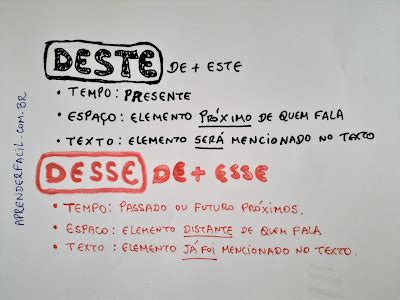 DESTE DE + ESTE
• TEMPO: PRESENTE
• ESPAÇO: ELEMENTO PRÓXIMO DE QUEM FALA
• TEXTO: ELEMENTO SERÁ MENCIONADO NO TEXTO
DESSE DE + ESSE
• TEMPO: PASSADO OU FUTURO PRÓXIMOS.
• ESPAÇO: ELEMENTO DISTANTE DE QUEM FALA
• TEXTO: ELEMENTO JÁ FOI MENCIONADO NO TEXTO.
APRENDERFACIL.COM.BR